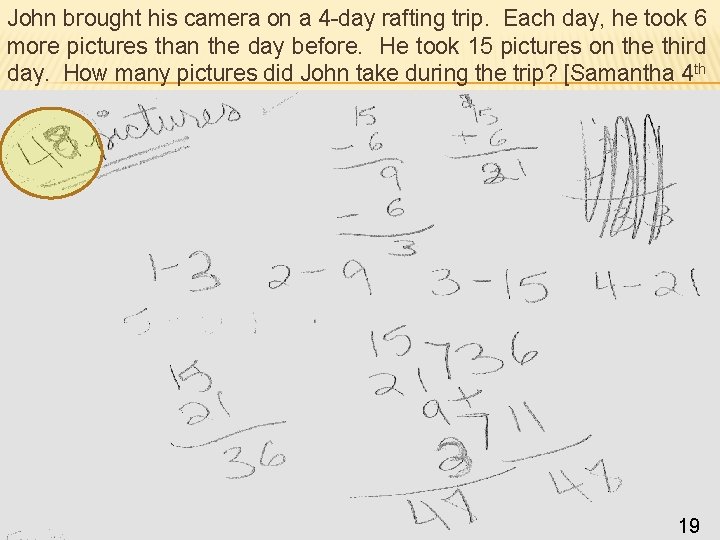 John brought his camera on a 4-day rafting trip. Each day, he took 6
more pictures than the day before. He took 15 pictures on the third
day. How many pictures did John take during the trip? [Samantha 4th
48 pictures
15
- 6
9
- 6
3
15
+ 6
21
1-3 2-9 3-15 4-21
15
21
36
15
21 36
9 +
3 11
48 48
19